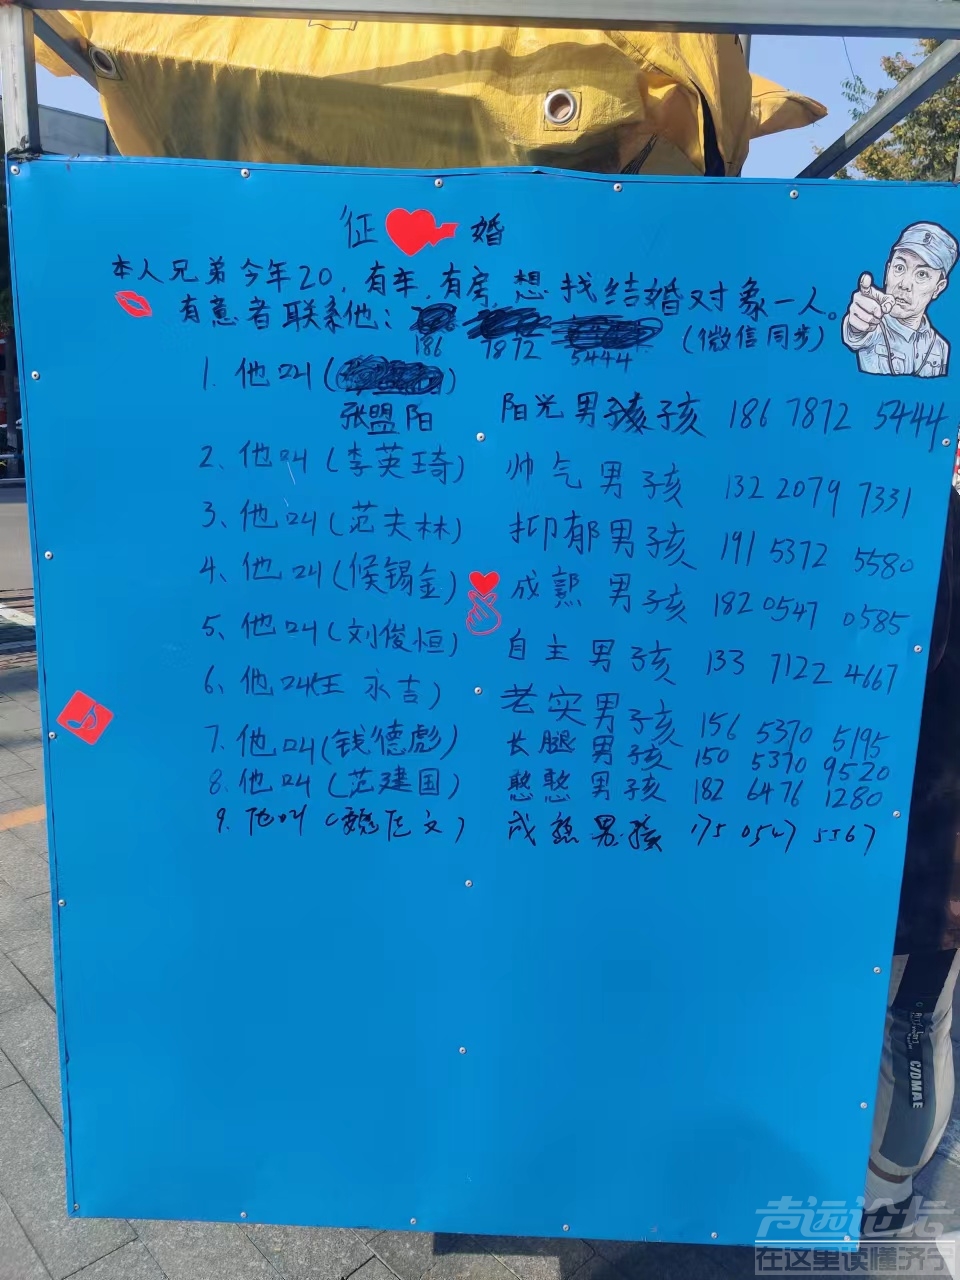 征 婚
本人兄弟今年20,有车,有房,想找结婚对象一人。
有意者联系他: 186 7872 5444 (微信同步)
1. 他叫( )
张盟阳 阳光男孩 186 7872 5444
2、他叫(李英琦) 帅气男孩 132 2079 7331
3、他叫(范夫林) 抑郁男孩 191 5372 5580
4、他叫(侯锡金) 成熟男孩 182 0547 0585
5、他叫(刘俊恒) 自主男孩 133 7122 4667
6、他叫(王永吉) 老实男孩 156 5370 5195
7、他叫(钱德彪) 长腿男孩 150 5370 9520
8、他叫(范建国) 憨憨男孩 182 6476 1280
9. 他叫(魏 文) 成熟男孩 175 0547 5567
C/DMAE
声远论坛
在这里读懂济宁